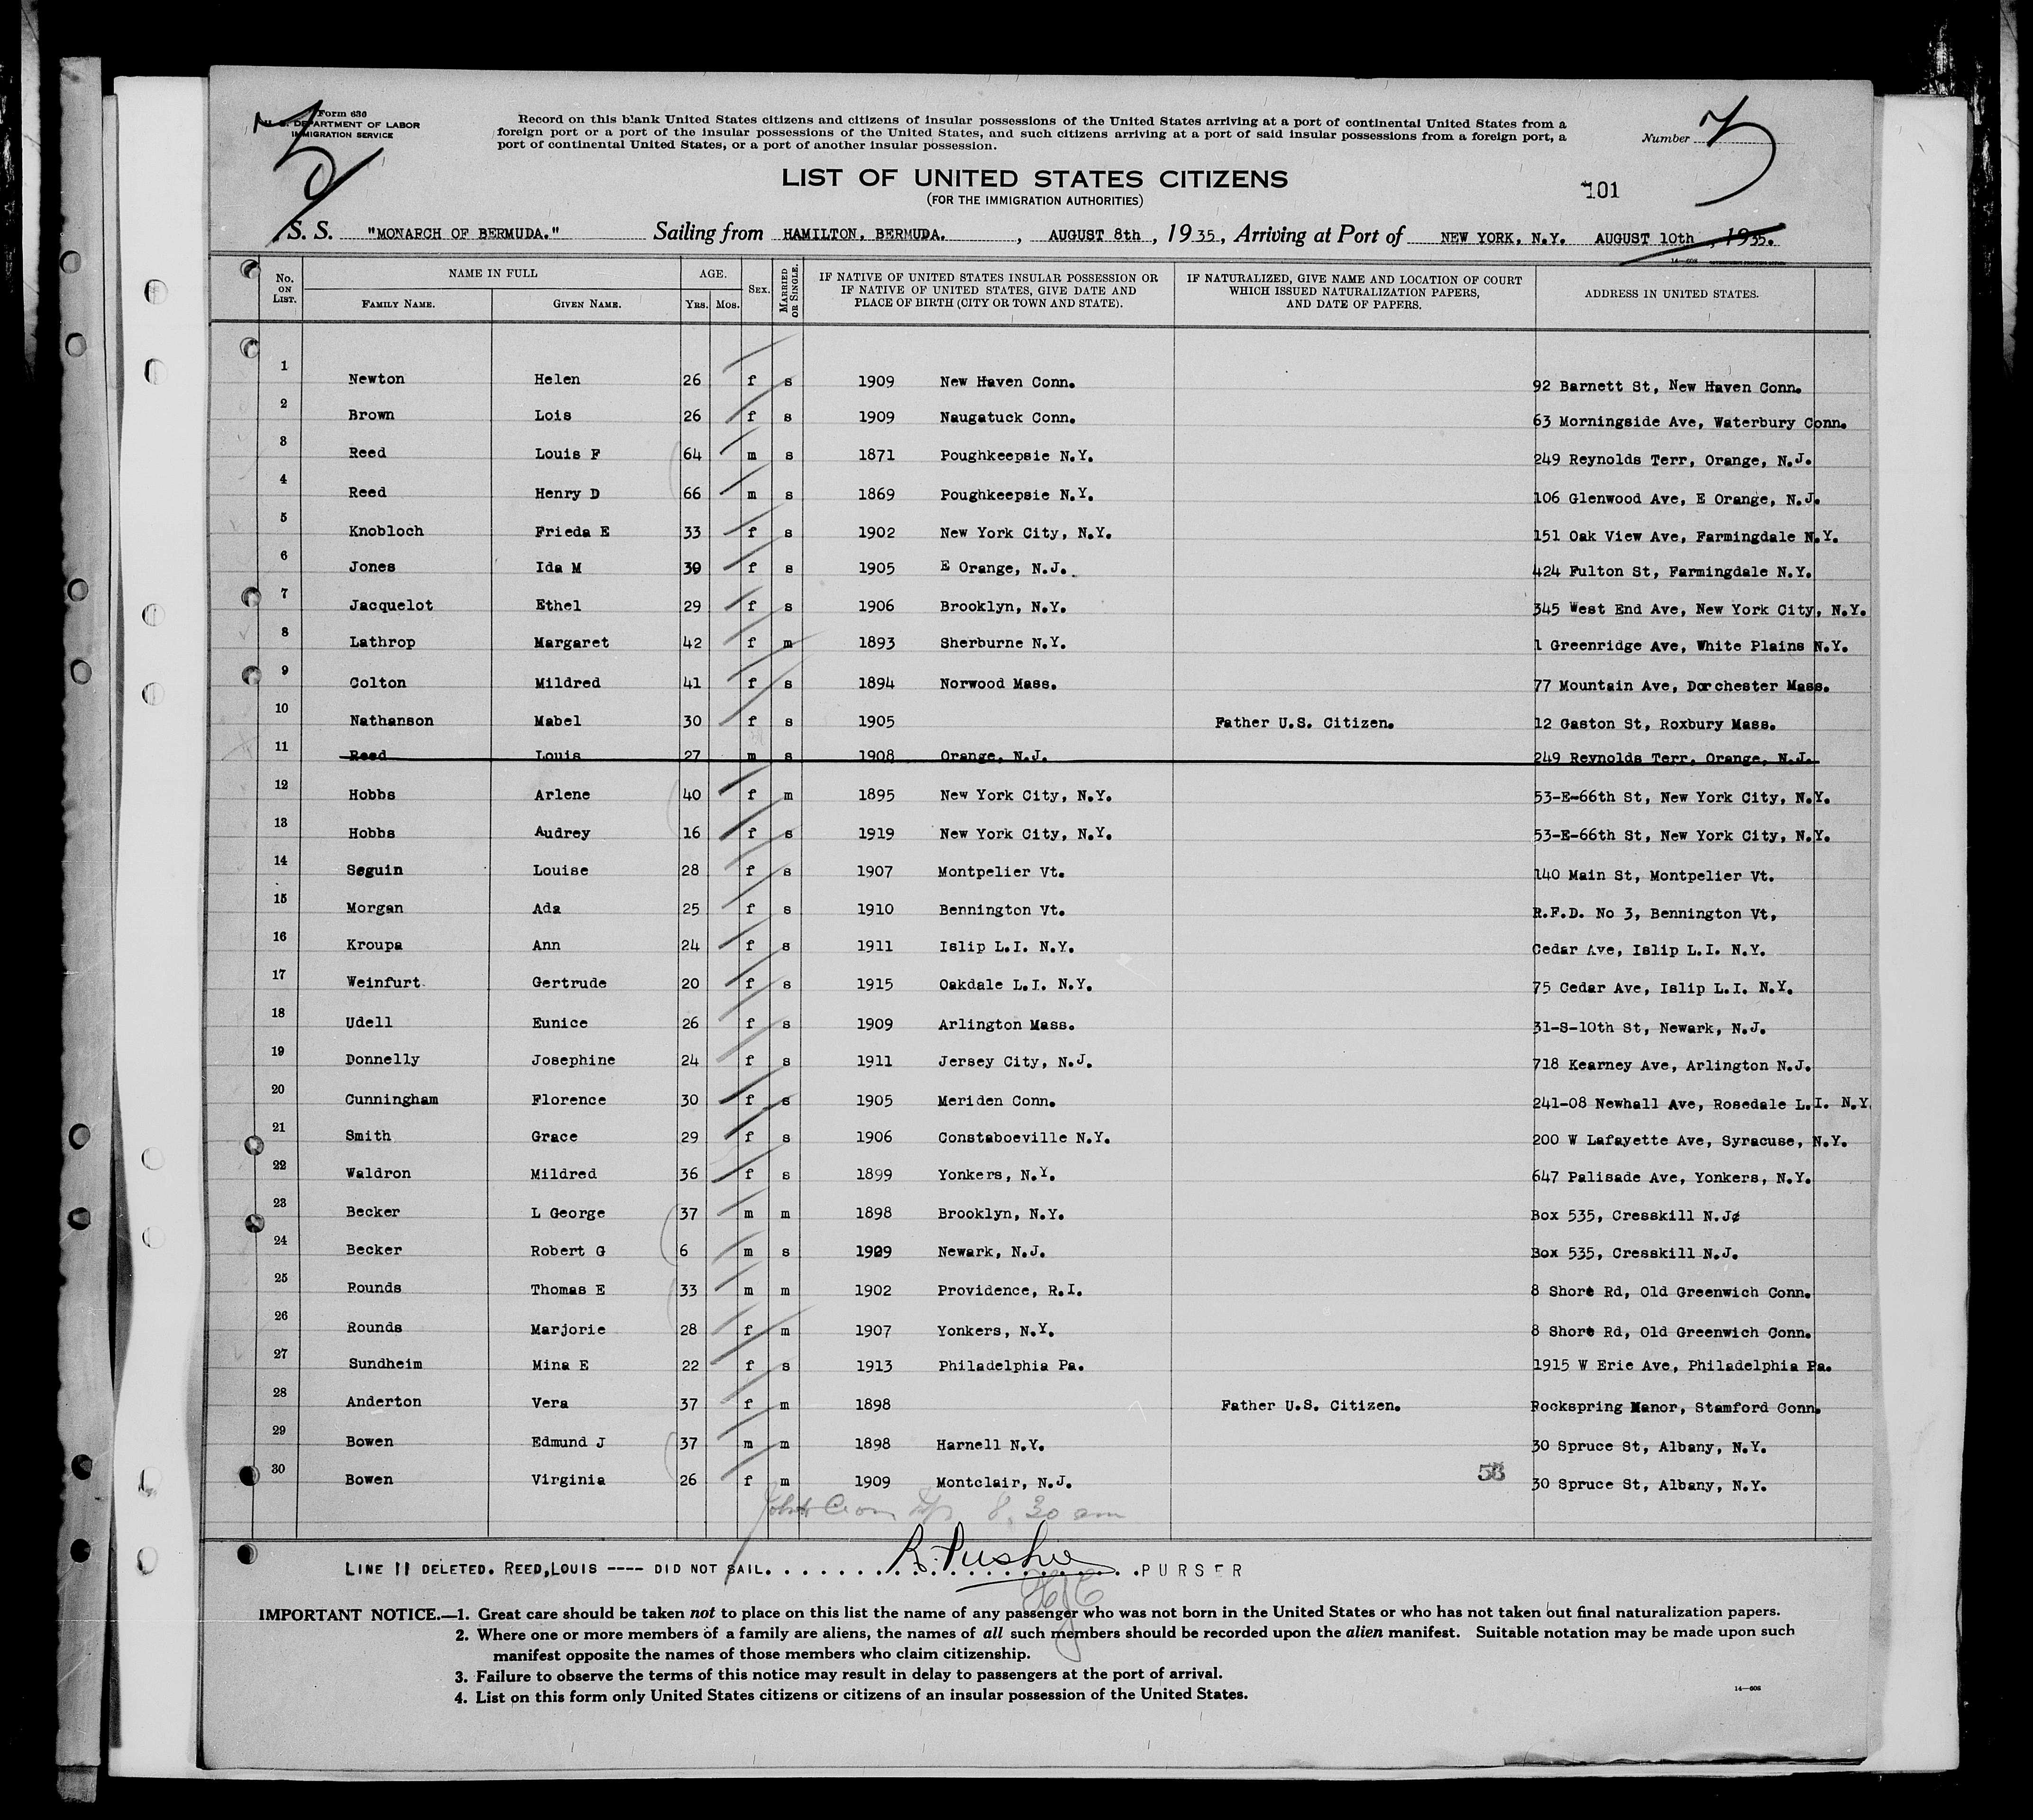 Form 630
U. S. DEPARTMENT OF LABOR
IMMIGRATION SERVICE
Record on this blank United States citizens and citizens of insular possessions of the United States arriving at a port of continental United States from a
foreign port or a port of the insular possessions of the United States, and such citizens arriving at a port of said insular possessions from a foreign port, a
port of continental United States, or a port of another insular possession.
Number
LIST OF UNITED STATES CITIZENS
(FOR THE IMMIGRATION AUTHORITIES)
101
S. S. "MONARCH OF BERMUDA." Sailing from HAMILTON, BERMUDA. , AUGUST 8th , 1935, Arriving at Port of NEW YORK, N.Y. AUGUST 10th , 1935.
No. ON LIST. NAME IN FULL AGE. SEX. MARRIED OR SINGLE. IF NATIVE OF UNITED STATES INSULAR POSSESSION OR IF NATIVE OF UNITED STATES, GIVE DATE AND PLACE OF BIRTH (CITY OR TOWN AND STATE). IF NATURALIZED, GIVE NAME AND LOCATION OF COURT WHICH ISSUED NATURALIZATION PAPERS, AND DATE OF PAPERS. ADDRESS IN UNITED STATES.
FAMILY NAME. GIVEN NAME. YRS. MOS.
1 Newton Helen 26 f s 1909 New Haven Conn. 92 Barnett St, New Haven Conn.
2 Brown Lois 26 f s 1909 Naugatuck Conn. 63 Morningside Ave, Waterbury Conn.
3 Reed Louis F 64 m s 1871 Poughkeepsie N.Y. 249 Reynolds Terr, Orange, N.J.
4 Reed Henry D 66 m s 1869 Poughkeepsie N.Y. 106 Glenwood Ave, E Orange, N.J.
5 Knobloch Frieda E 33 f s 1902 New York City, N.Y. 151 Oak View Ave, Farmingdale N.Y.
6 Jones Ida M 30 f s 1905 E Orange, N.J. 424 Fulton St, Farmingdale N.Y.
7 Jacquelot Ethel 29 f s 1906 Brooklyn, N.Y. 345 West End Ave, New York City, N.Y.
8 Lathrop Margaret 42 f m 1893 Sherburne N.Y. 1 Greenridge Ave, White Plains N.Y.
9 Colton Mildred 41 f s 1894 Norwood Mass. 77 Mountain Ave, Dorchester Mass.
10 Nathanson Mabel 30 f s 1905 Father U.S. Citizen. 12 Gaston St, Roxbury Mass.
11 Reed Louis 27 m s 1908 Orange, N.J. 249 Reynolds Terr, Orange, N.J.
12 Hobbs Arlene 40 f m 1895 New York City, N.Y. 53-E-66th St, New York City, N.Y.
13 Hobbs Audrey 16 f s 1919 New York City, N.Y. 53-E-66th St, New York City, N.Y.
14 Seguin Louise 28 f s 1907 Montpelier Vt. 140 Main St, Montpelier Vt.
15 Morgan Ada 25 f s 1910 Bennington Vt. R.F.D. No 3, Bennington Vt,
16 Kroupa Ann 24 f s 1911 Islip L.I. N.Y. Cedar Ave, Islip L.I. N.Y.
17 Weinfurt Gertrude 20 f s 1915 Oakdale L.I. N.Y. 75 Cedar Ave, Islip L.I. N.Y.
18 Udell Eunice 26 f s 1909 Arlington Mass. 31-S-10th St, Newark, N.J.
19 Donnelly Josephine 24 f s 1911 Jersey City, N.J. 718 Kearney Ave, Arlington N.J.
20 Cunningham Florence 30 f s 1905 Meriden Conn. 241-08 Newhall Ave, Rosedale L.I. N.Y.
21 Smith Grace 29 f s 1906 Constaboeville N.Y. 200 W Lafayette Ave, Syracuse, N.Y.
22 Waldron Mildred 36 f s 1899 Yonkers, N.Y. 647 Palisade Ave, Yonkers, N.Y.
23 Becker L George 37 m m 1898 Brooklyn, N.Y. Box 535, Cresskill N.J.
24 Becker Robert G 6 m s 1929 Newark, N.J. Box 535, Cresskill N.J.
25 Rounds Thomas E 33 m m 1902 Providence, R.I. 8 Shore Rd, Old Greenwich Conn.
26 Rounds Marjorie 28 f m 1907 Yonkers, N.Y. 8 Shore Rd, Old Greenwich Conn.
27 Sundheim Mina E 22 f s 1913 Philadelphia Pa. 1915 W Erie Ave, Philadelphia Pa.
28 Anderton Vera 37 f m 1898 Father U.S. Citizen. Rockspring Manor, Stamford Conn.
29 Bowen Edmund J 37 m m 1898 Harnell N.Y. 30 Spruce St, Albany, N.Y.
30 Bowen Virginia 26 f m 1909 Montclair, N.J. 30 Spruce St, Albany, N.Y.
8.30 am
LINE 11 DELETED. REED,LOUIS ---- DID NOT SAIL. PURSER
IMPORTANT NOTICE.—1. Great care should be taken not to place on this list the name of any passenger who was not born in the United States or who has not taken out final naturalization papers.
2. Where one or more members of a family are aliens, the names of all such members should be recorded upon the alien manifest. Suitable notation may be made upon such
manifest opposite the names of those members who claim citizenship.
3. Failure to observe the terms of this notice may result in delay to passengers at the port of arrival.
4. List on this form only United States citizens or citizens of an insular possession of the United States.
14—608